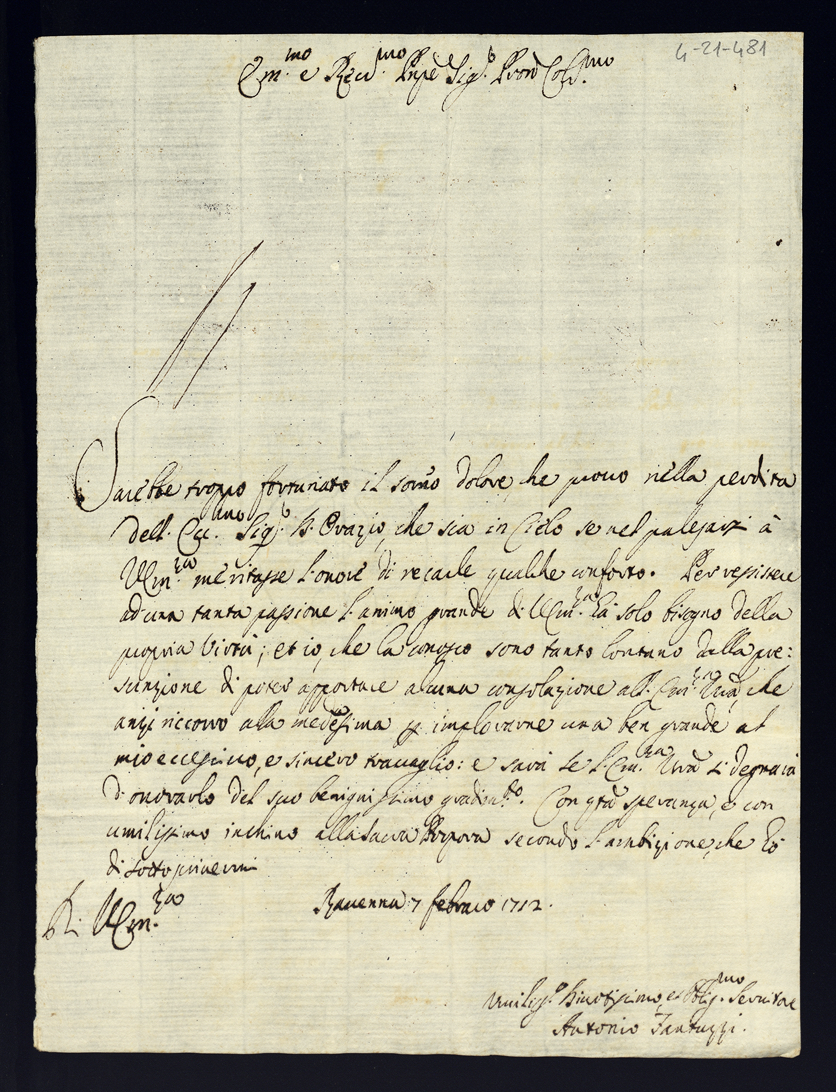 4-21-481
Em.mo e Reu.mo Prnpe Sig.e Pron Col.mo
Sarebbe troppo fortunato il sommo dolore, che prouo nella perdita
dell'Ecc.mo Sig.e D. Orazio, che sia in Cielo se nel palesarsi à
VEm.za meritasse l'onore di recarle qualche conforto. Per ressistere
ad una tanta passione l'animo grande di VEm.za hà solo bisogno della
propria Virtù; et io, che la conosco sono tanto lontano dalla pre:
sunzione di poter apportare alcuna consolazione all'Em.za Vra, che
anzi riccorro alla medesima p implorarne una ben grande al
mio eccessiuo, e sincero trauaglio: e sarà se l'Em.za Vra si degnarà
d'onorarlo del suo benignissimo gradim.to. Con qta speranza, e con
umilissimo inchino alla Sacra Porpora secondo l'ambizione, che hò
di sottoscriuermi
Di VEm.za
Rauenna 7 febraio 1712.
Umiliss.o Diuotissimo, et Oblig.mo Seruitore
Antonio Fantuzzi.